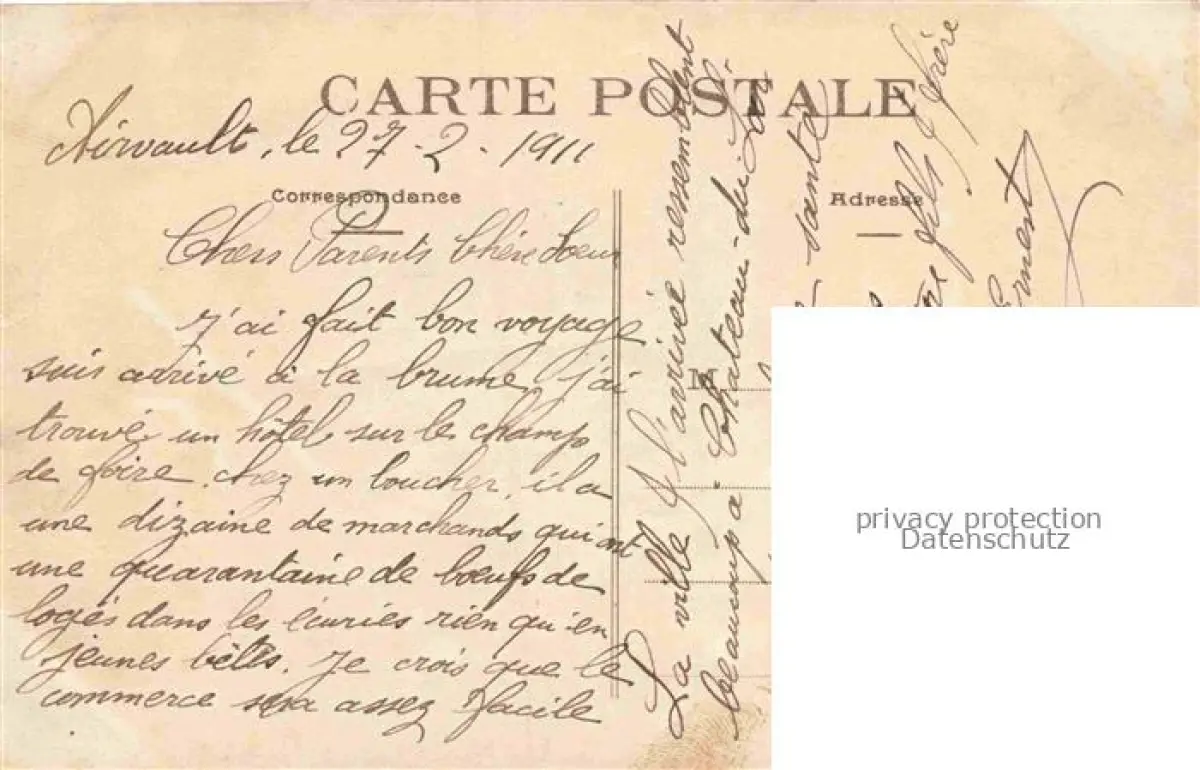 CARTE POSTALE
Airvault, le 27-2-1911
Correspondance
Adresse
Chers Parents Chère Soeur
J'ai fait bon voyage
suis arrivé à la brume, j'ai
trouvé un hôtel sur le champ
de foire, chez un boucher, il a
une dizaine de marchands qui ont
une quarantaine de bœufs de
logés dans les écuries rien qu'en
jeunes bêtes. Je crois que le
commerce sera assez facile
La ville l'arrivée ressemblent
beaucoup à Chateau-du-Loir
santé
fils frère
Ernest
M
privacy protection
Datenschutz